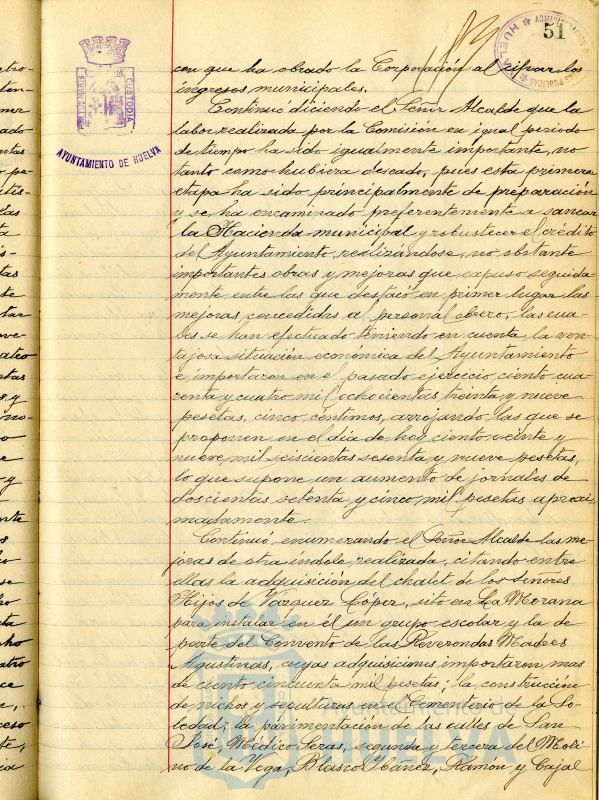 51
ADMINISTRACIÓN
HUELVA
CUSTODIA
AYUNTAMIENTO DE HUELVA
con que ha obrado la Corporación al cifrar los
ingresos municipales.
Continuó diciendo el Señor Alcalde que la
labor realizada por la Comisión en igual periodo
de tiempo ha sido igualmente importante, no
tanto como hubiera deseado, pues esta primera
etapa ha sido principalmente de preparación
y se ha encaminado preferentemente a sanear
la Hacienda municipal y robustecer el crédito
del Ayuntamiento, realizándose, no obstante
importantes obras y mejoras que expuso seguida-
mente entre las que destacó en primer lugar las
mejoras concedidas al personal obrero, las cua-
les se han efectuado teniendo en cuenta la ven-
tajosa situación económica del Ayuntamiento
e importaron en el pasado ejercicio ciento cua-
renta y cuatro mil ochocientas treinta y nueve
pesetas, cinco céntimos, arrojando las que se
proponen en el día de hoy ciento veinte y
nueve mil seiscientas sesenta y nueve pesetas,
lo que supone un aumento de jornales de
doscientas setenta y cinco mil pesetas aproxi
madamente.
Continuó enumerando el Señor Alcalde las me-
joras de otra índole realizada, citando entre
ellas la adquisición del chalet de los Señores
Hijos de Vázquez López, sito en La Morana
para instalar en él un grupo escolar y la de
parte del Convento de las Reverendas Madres
Agustinas, cuyas adquisiciones importaron mas
de ciento cincuenta mil pesetas; la construcción
de nichos y sepulturas en el Cementerio de la So-
ledad; la pavimentación de las calles de San
José, Médico Seras, segunda y tercera del Moli-
no de la Vega, Blasco Ibáñez, Ramón y Cajal
Ayuntamiento de
HUELVA